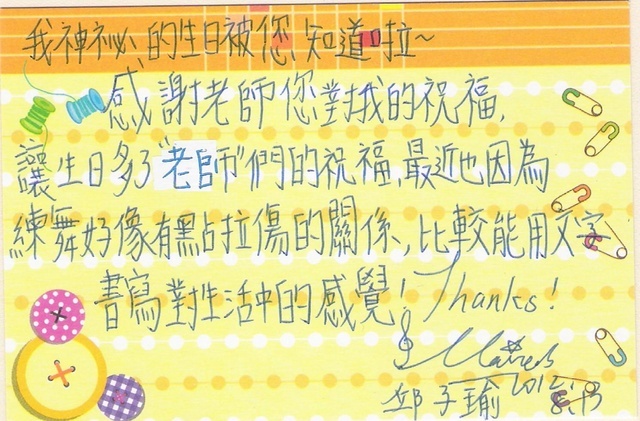 我神祕的生日被您知道啦~
感謝老師您對我的祝福,
讓生日多了"老師"們的祝福,最近也因為
練舞好像有點拉傷的關係,比較能用文字
書寫對生活中的感覺! Thanks!
邱子瑜 2012.
8.13